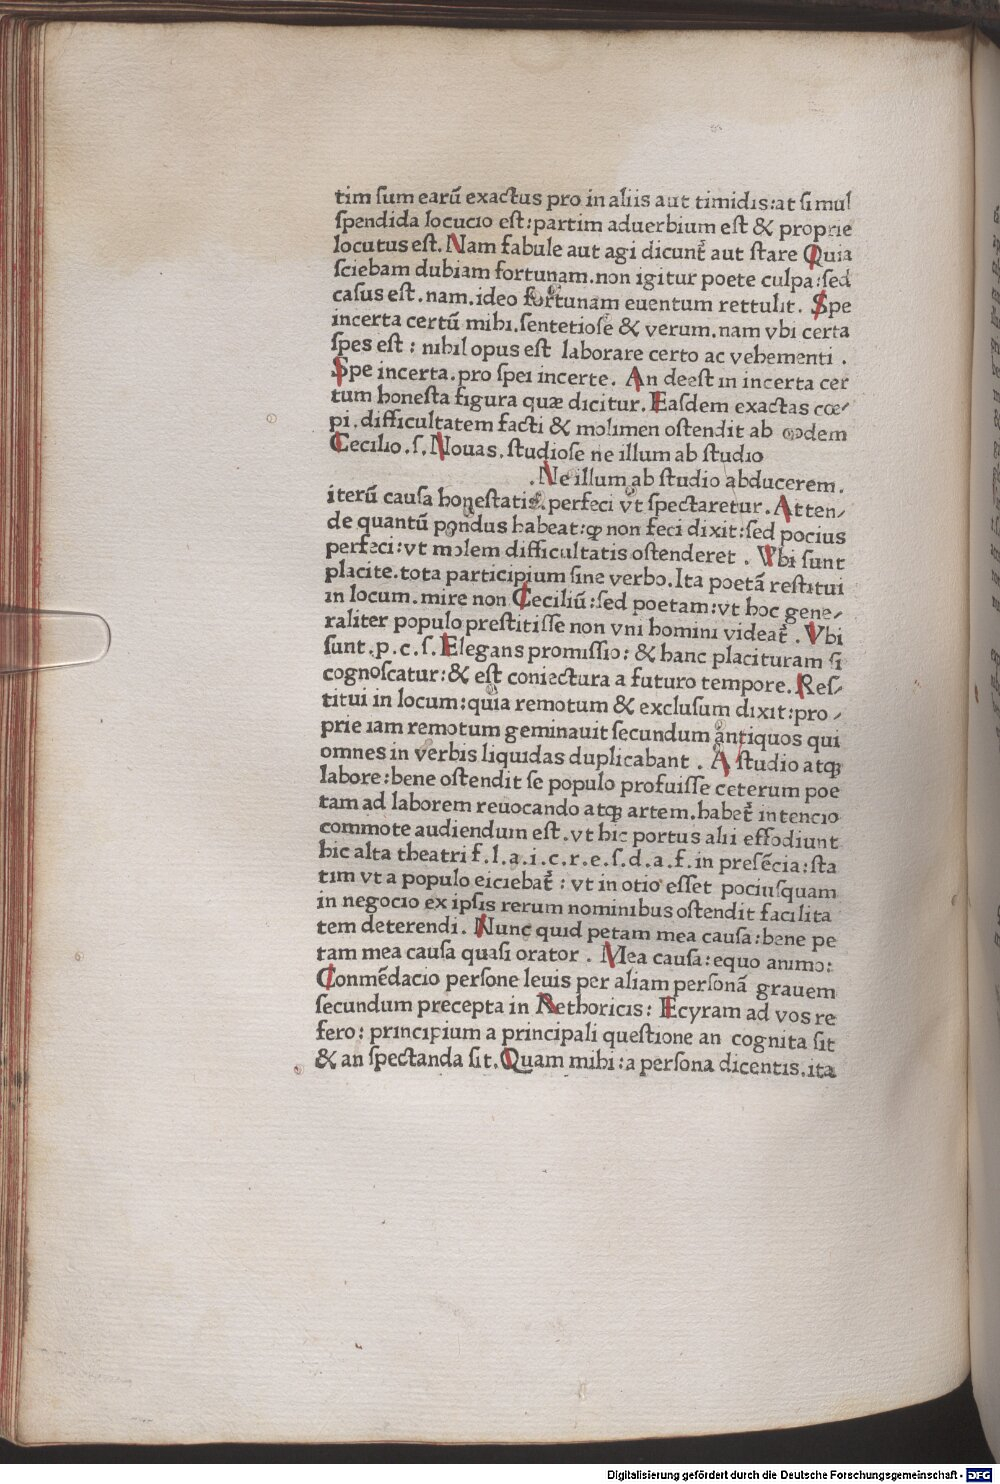 tim ſum earū exactus pro in aliis aut timidis:at ſimul
ſpendida locucio eſt:partim aduerbium eſt & proprie
locutus eſt. Nam fabule aut agi dicunt᷑ aut ſtare Quia
ſciebam dubiam fortunam.non igitur poete culpa:ſed
caſus eſt.nam.ideo fortunam euentum rettulit. Spe
incerta certū mihi.ſentetioſe & verum.nam vbi certa
ſpes eſt : nihil opus eſt laborare certo ac vehementi .
Spe incerta.pro ſpei incerte. An deeſt in incerta cer
tum honeſta figura quæ dicitur. Eaſdem exactas cœ⸗
pi.difficultatem facti & molimen oſtendit ab eodem
Cecilio.ſ.Nouas.ſtudioſe ne illum ab ſtudio
.Ne illum ab ſtudio abducerem.
iterū cauſa honeſtatis.perfeci vt ſpectaretur.Atten⸗
de quantū pondus habeat:ꝙ non feci dixit:ſed pocius
perfeci:vt molem difficultatis oſtenderet . Vbi ſunt
placite.tota participium ſine verbo.Ita poetā reſtitui
in locum.mire non Ceciliū:ſed poetam:vt hoc gene⸗
raliter populo preſtitiſſe non vni homini videat᷑ .Vbi
ſunt.p.c.ſ.Elegans promiſſio: & hanc placituram ſi
cognoſcatur:& eſt coniectura a futuro tempore.Reſ⸗
titui in locum:quia remotum & excluſum dixit:pro⸗
prie iam remotum geminauit ſecundum antiquos qui
omnes in verbis liquidas duplicabant . A ſtudio atqꝫ
labore:bene oſtendit ſe populo profuiſſe ceterum poe
tam ad laborem reuocando atqꝫ artem.habet᷑ intencio
commote audiendum eſt.vt hic portus alii effodiunt
hic alta theatri f.l.a.i.c.r.e.ſ.d.a.f.in preſēcia:ſta
tim vt a populo eiciebat᷑ : vt in otio eſſet pociuſquam
in negocio ex ipſis rerum nominibus oſtendit facilita
tem deterendi. Nunc quid petam mea cauſa:bene pe
tam mea cauſa quaſi orator . Mea cauſa:equo animo:
Conmēdacio perſone leuis per aliam perſonā grauem
ſecundum precepta in Rethoricis: Ecyram ad vos re
fero: principium a principali queſtione an cognita ſit
& an ſpectanda ſit.Quam mihi:a perſona dicentis.ita
Digitalisierung gefördert durch die Deutsche Forschungsgemeinschaft - DFG